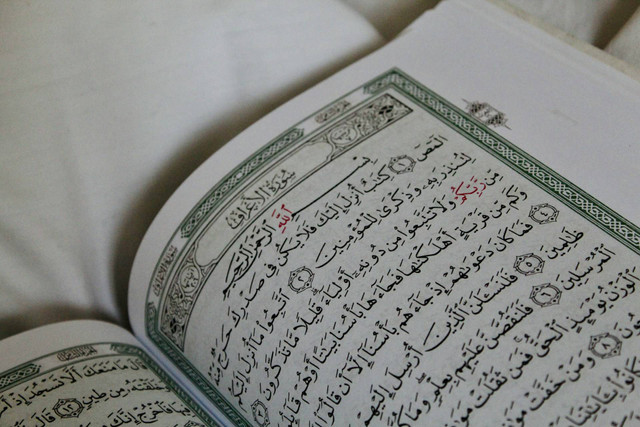 سُورَةُ الأَعْرَافِ
بِسْمِ ٱللَّهِ ٱلرَّحْمَٰنِ ٱلرَّحِيمِ
الٓمٓصٓ ١ كِتَٰبٌ أُنزِلَ إِلَيْكَ فَلَا يَكُن فِي صَدْرِكَ حَرَجٌ مِّنْهُ
لِتُنذِرَ بِهِۦ وَذِكْرَىٰ لِلْمُؤْمِنِينَ ٢ ٱتَّبِعُوا۟ مَآ أُنزِلَ إِلَيْكُم
مِّن رَّبِّكُمْ وَلَا تَتَّبِعُوا۟ مِن دُونِهِۦٓ أَوْلِيَآءَ قَلِيلًا مَّا تَذَكَّرُونَ ٣
وَكَم مِّن قَرْيَةٍ أَهْلَكْنَٰهَا فَجَآءَهَا بَأْسُنَا بَيَٰتًا أَوْ هُمْ قَآئِلُونَ ٤
فَمَا كَانَ دَعْوَىٰهُمْ إِذْ جَآءَهُم بَأْسُنَآ إِلَّآ أَن قَالُوٓا۟
ظَٰلِمِينَ ٥ فَلَنَسْـَٔلَنَّ ٱلَّذِينَ أُرْسِلَ إِلَيْهِمْ
ٱلْمُرْسَلِينَ ٦ فَلَنَقُصَّنَّ عَلَيْهِم بِعِلْمٍ وَمَا كُنَّا
وَٱلْوَزْنُ يَوْمَئِذٍ ٱلْحَقُّ فَمَن ثَقُلَتْ
٨ وَمَنْ خَفَّتْ
كَانُوا۟ بِـَٔايَٰتِنَا
قَالَ مَا مَنَعَكَ أَلَّا تَسْجُدَ إِذْ
مِن طِينٍ ١٢ قَالَ
فَٱخْرُجْ إِنَّكَ